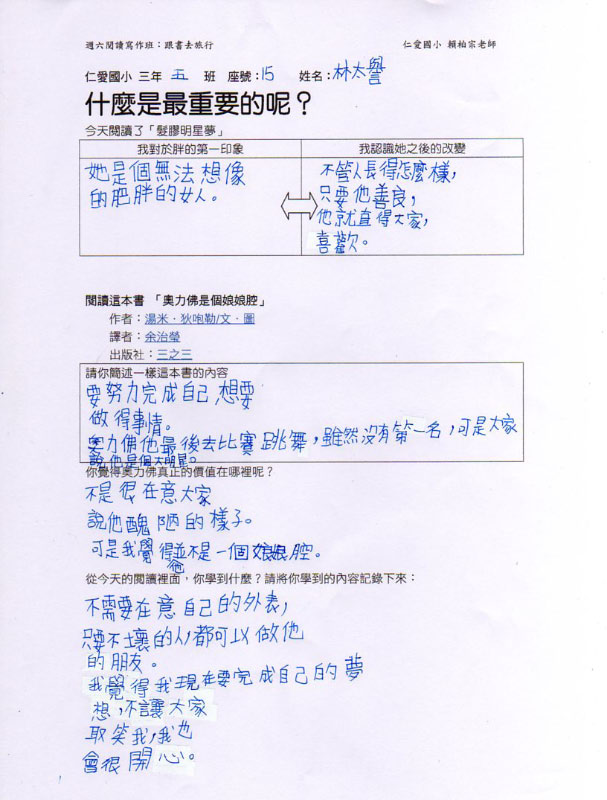 週六閱讀寫作班：跟書去旅行 仁愛國小 賴柏宗老師
仁愛國小 三年 五 班 座號：15 姓名：林太譽
什麼是最重要的呢？
今天閱讀了「髮膠明星夢」
我對於胖的第一印象
她是個無法想像
的肥胖的女人。
我認識她之後的改變
不管人長得怎麼樣，
只要他善良，
他就直得大家，
喜歡。
閱讀這本書 「奧力佛是個娘娘腔」
作者：湯米‧狄咆勒/文‧圖
譯者：余治瑩
出版社：三之三
請你簡述一樣這本書的內容
要努力完成自己想要
做得事情。
奧力佛他最後去比賽跳舞，雖然沒有第一名，可是大家
說他是個大明星。
你覺得奧力佛真正的價值在哪裡呢？
不是很在意大家
說他醜陋的樣子。
可是我覺得他並不是一個娘娘腔。
從今天的閱讀裡面，你學到什麼？請將你學到的內容記錄下來：
不需要在意自己的外表，
只要不壞的人都可以做他
的朋友。
我覺得我現在要完成自己的夢
想，不讓大家
取笑我，我也
會很開心。